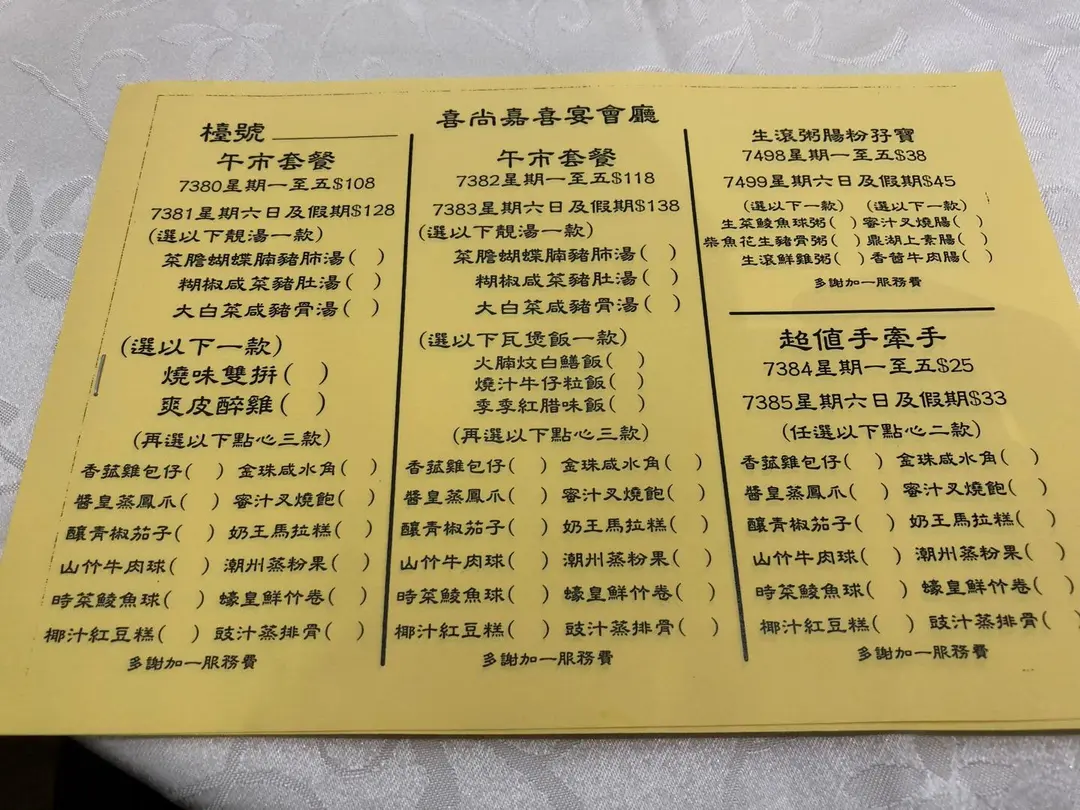 喜尚嘉喜宴會廳
檯號
午市套餐
7380星期一至五$108
7381星期六日及假期$128
(選以下靚湯一款)
菜膽蝴蝶腩豬肺湯( )
糊椒咸菜豬肚湯( )
大白菜咸豬骨湯( )
(選以下一款)
燒味雙拼( )
爽皮醉雞( )
(再選以下點心三款)
香菰雞包仔( ) 金珠咸水角( )
醬皇蒸鳳爪( ) 蜜汁叉燒飽( )
釀青椒茄子( ) 奶王馬拉糕( )
山竹牛肉球( ) 潮州蒸粉果( )
時菜鯪魚球( ) 蠔皇鮮竹卷( )
椰汁紅豆糕( ) 豉汁蒸排骨( )
多謝加一服務費
午市套餐
7382星期一至五$118
7383星期六日及假期$138
(選以下靚湯一款)
菜膽蝴蝶腩豬肺湯( )
糊椒咸菜豬肚湯( )
大白菜咸豬骨湯( )
(選以下瓦煲飯一款)
火腩炆白鱔飯( )
燒汁牛仔粒飯( )
季季紅腊味飯( )
(再選以下點心三款)
香菰雞包仔( ) 金珠咸水角( )
醬皇蒸鳳爪( ) 蜜汁叉燒飽( )
釀青椒茄子( ) 奶王馬拉糕( )
山竹牛肉球( ) 潮州蒸粉果( )
時菜鯪魚球( ) 蠔皇鮮竹卷( )
椰汁紅豆糕( ) 豉汁蒸排骨( )
多謝加一服務費
生滾粥腸粉孖寶
7498星期一至五$38
7499星期六日及假期$45
(選以下一款) (選以下一款)
生菜鯪魚球粥( ) 蜜汁叉燒腸( )
柴魚花生豬骨粥( ) 鼎湖上素腸( )
生滾鮮雞粥( ) 香茜牛肉腸( )
多謝加一服務費
超值手牽手
7384星期一至五$25
7385星期六日及假期$33
(任選以下點心二款)
香菰雞包仔( ) 金珠咸水角( )
醬皇蒸鳳爪( ) 蜜汁叉燒飽( )
釀青椒茄子( ) 奶王馬拉糕( )
山竹牛肉球( ) 潮州蒸粉果( )
時菜鯪魚球( ) 蠔皇鮮竹卷( )
椰汁紅豆糕( ) 豉汁蒸排骨( )
多謝加一服務費